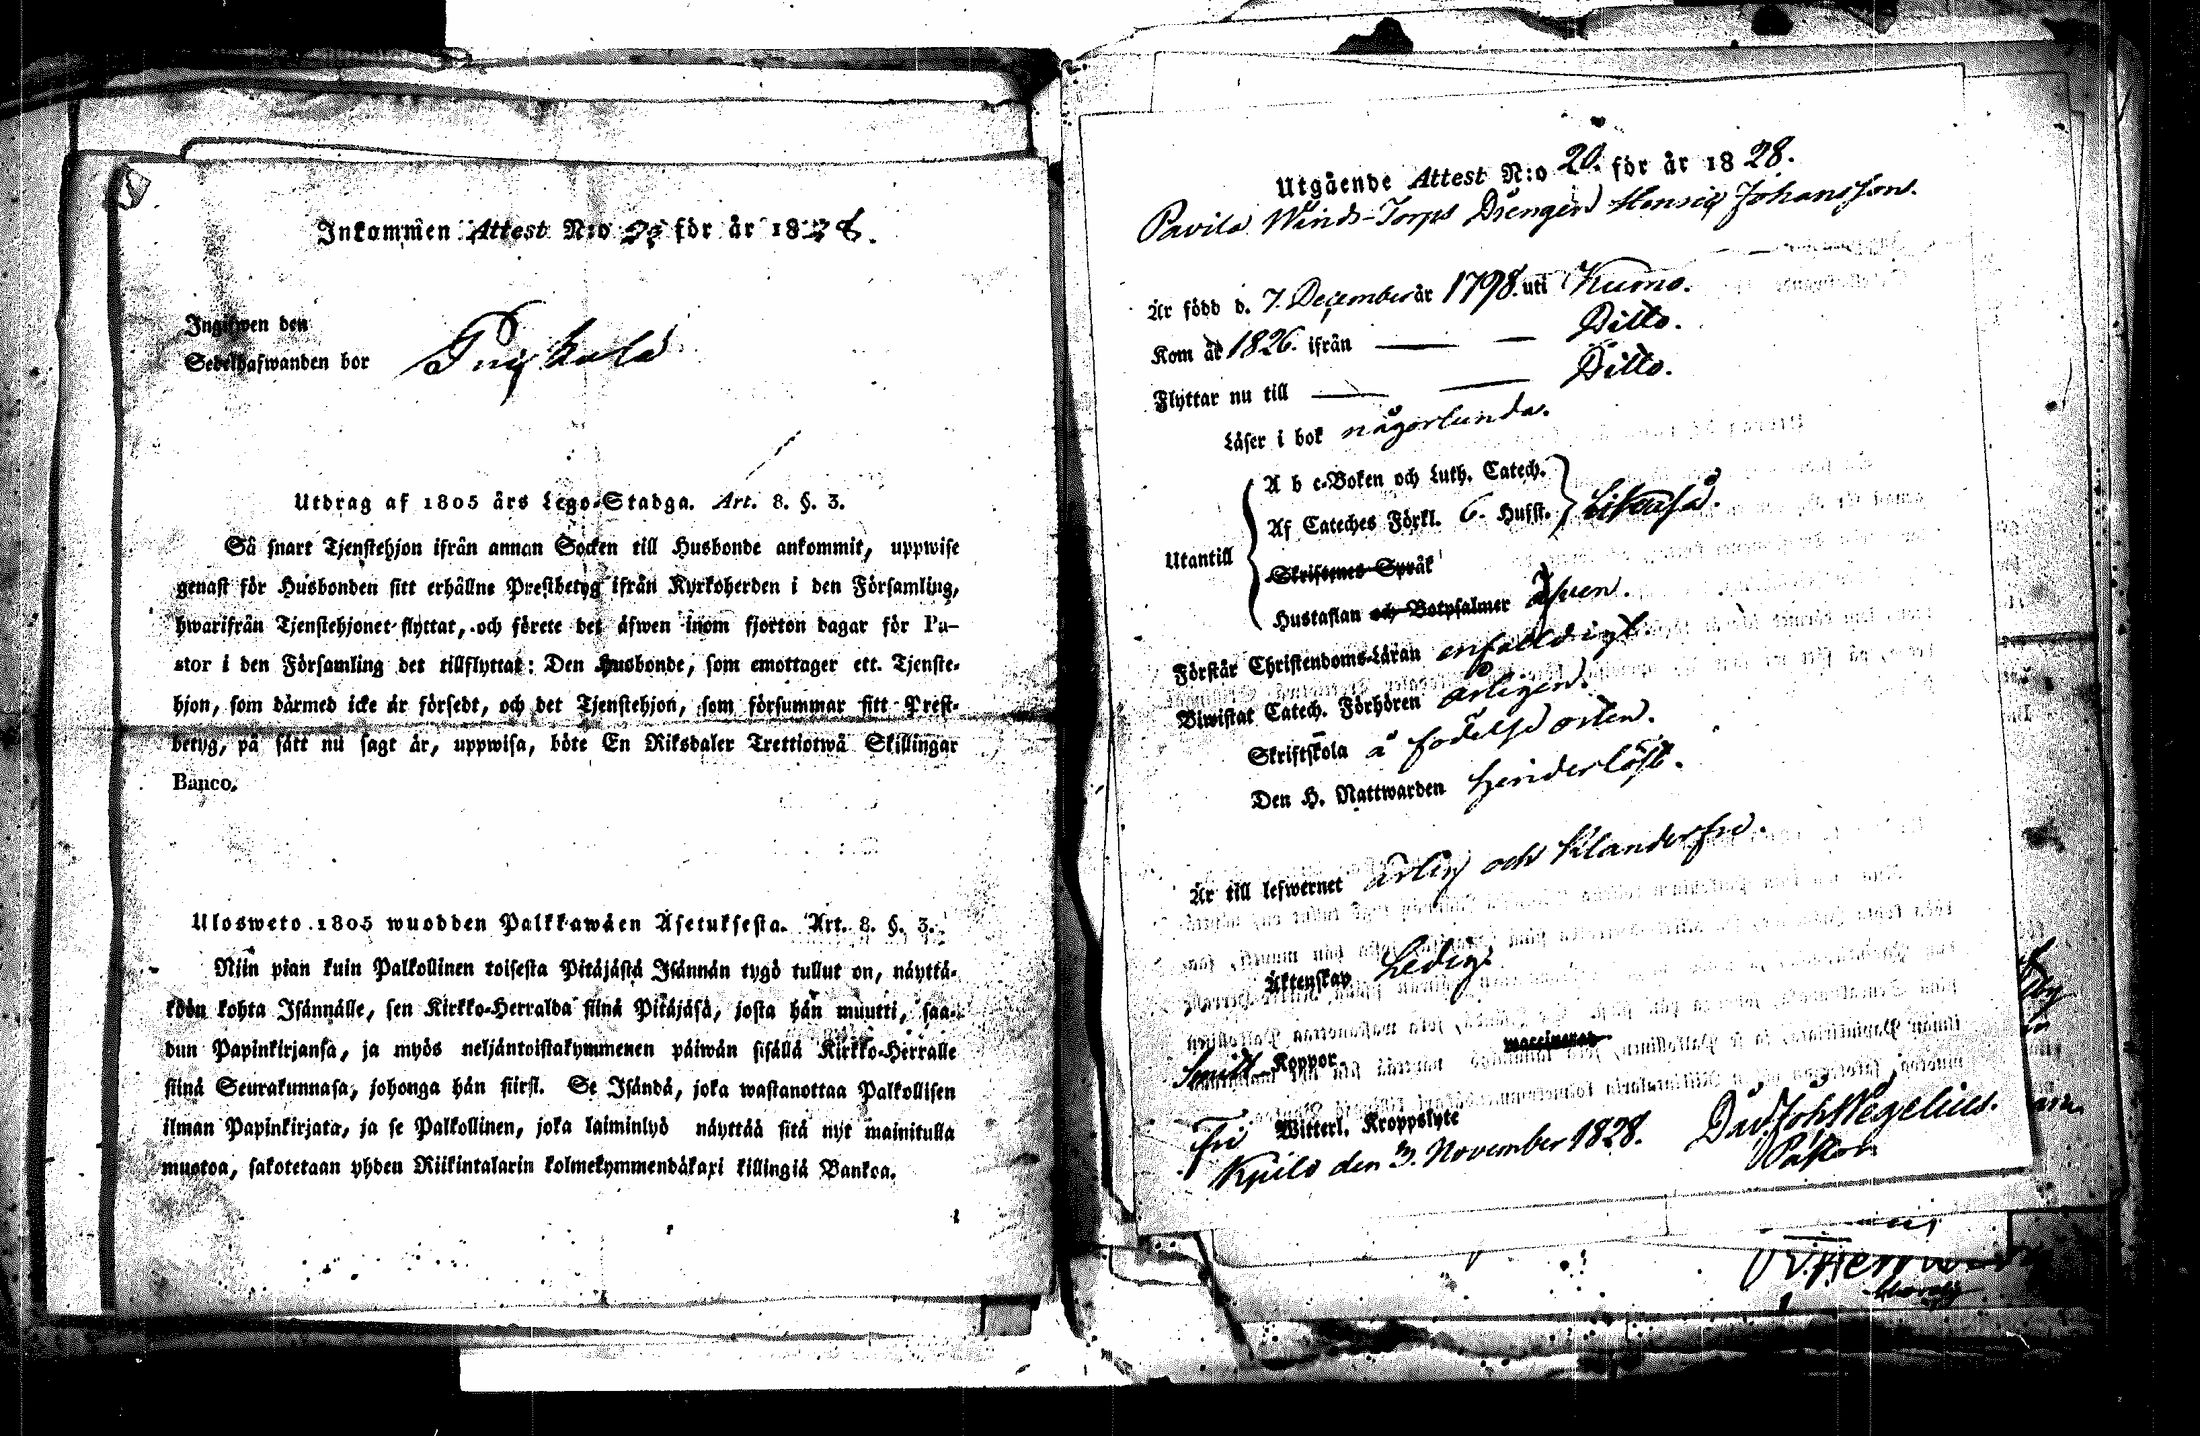 Inkommen Attest N:o 23 för år 1828.
Ingifwen den
Sedelhafwanden bor
Utdrag af 1805 års Lego-Stadga. Art. 8. §. 3.
Så snart Tjenstehjon ifrån annan Socken till Husbonde ankommit, uppwise
genast för Husbonden sitt erhållne Prestbetyg ifrån Kyrkoherden i den Församling,
hwarifrån Tjenstehjonet flyttat, och förete det äfwen inom fjorton dagar för Pa-
stor i den Församling det tillflyttat: Den Husbonde, som emottager ett Tjenste-
hjon, som därmed icke är försedt, och det Tjenstehjon, som försummar sitt Prest-
betyg, på sätt nu sagt är, uppwisa, böte En Riksdaler Trettiotwå Skillingar
Banco.
Ulosweto 1805 wuodden Palkkawäen Asetuksesta. Art. 8. §. 3.
Niin pian kuin Palkollinen toisesta Pitäjästä Isännän tygö tullut on, näyttä-
köön kohta Isännälle, sen Kirkko-Herralda siinä Pitäjäsä, josta hän muutti, saa-
dun Papinkirjansa, ja myös neljäntoistakymmenen päiwän sisällä Kirkko-Herralle
siinä Seurakunnasa, johonga hän siirsi. Se Isändä, joka wastanottaa Palkollisen
ilman Papinkirjata, ja se Palkollinen, joka laiminlyö näyttää sitä nyt mainitulla
muotoa, sakotetaan yhden Riikintalarin kolmekymmendäkaxi killingiä Bankoa.
Utgående Attest N:o 20. för år 1828.
Pavila Winds-Torps Drengen Henric Johansson.
Är född d. 7. December år 1798. uti Kumo.
Kom år 1826. ifrån — — Ditto.
Flyttar nu till — — Ditto.
Läser i bok någorlunda.
Utantill
A b c-Boken och Luth. Catech.
Af Cateches Förkl. 6. Husst. likaså.
Skriftenes Språk
Hustaflan och Botpsalmer äfven.
Förstår Christendoms-Läran enfaldigt
Biwistat Catech. Förhören årligen.
Skriftskola å födelse orten.
Den H. Nattwarden hinderlöst.
Är till lefwernet ärlig och klanderfri.
Äktenskap Ledig.
vaccinerad
Smitt-Koppor
Fri Witterl. Kroppslyte
Kjulo den 3. November 1828. Dav. Joh Wegelius.
Pastor